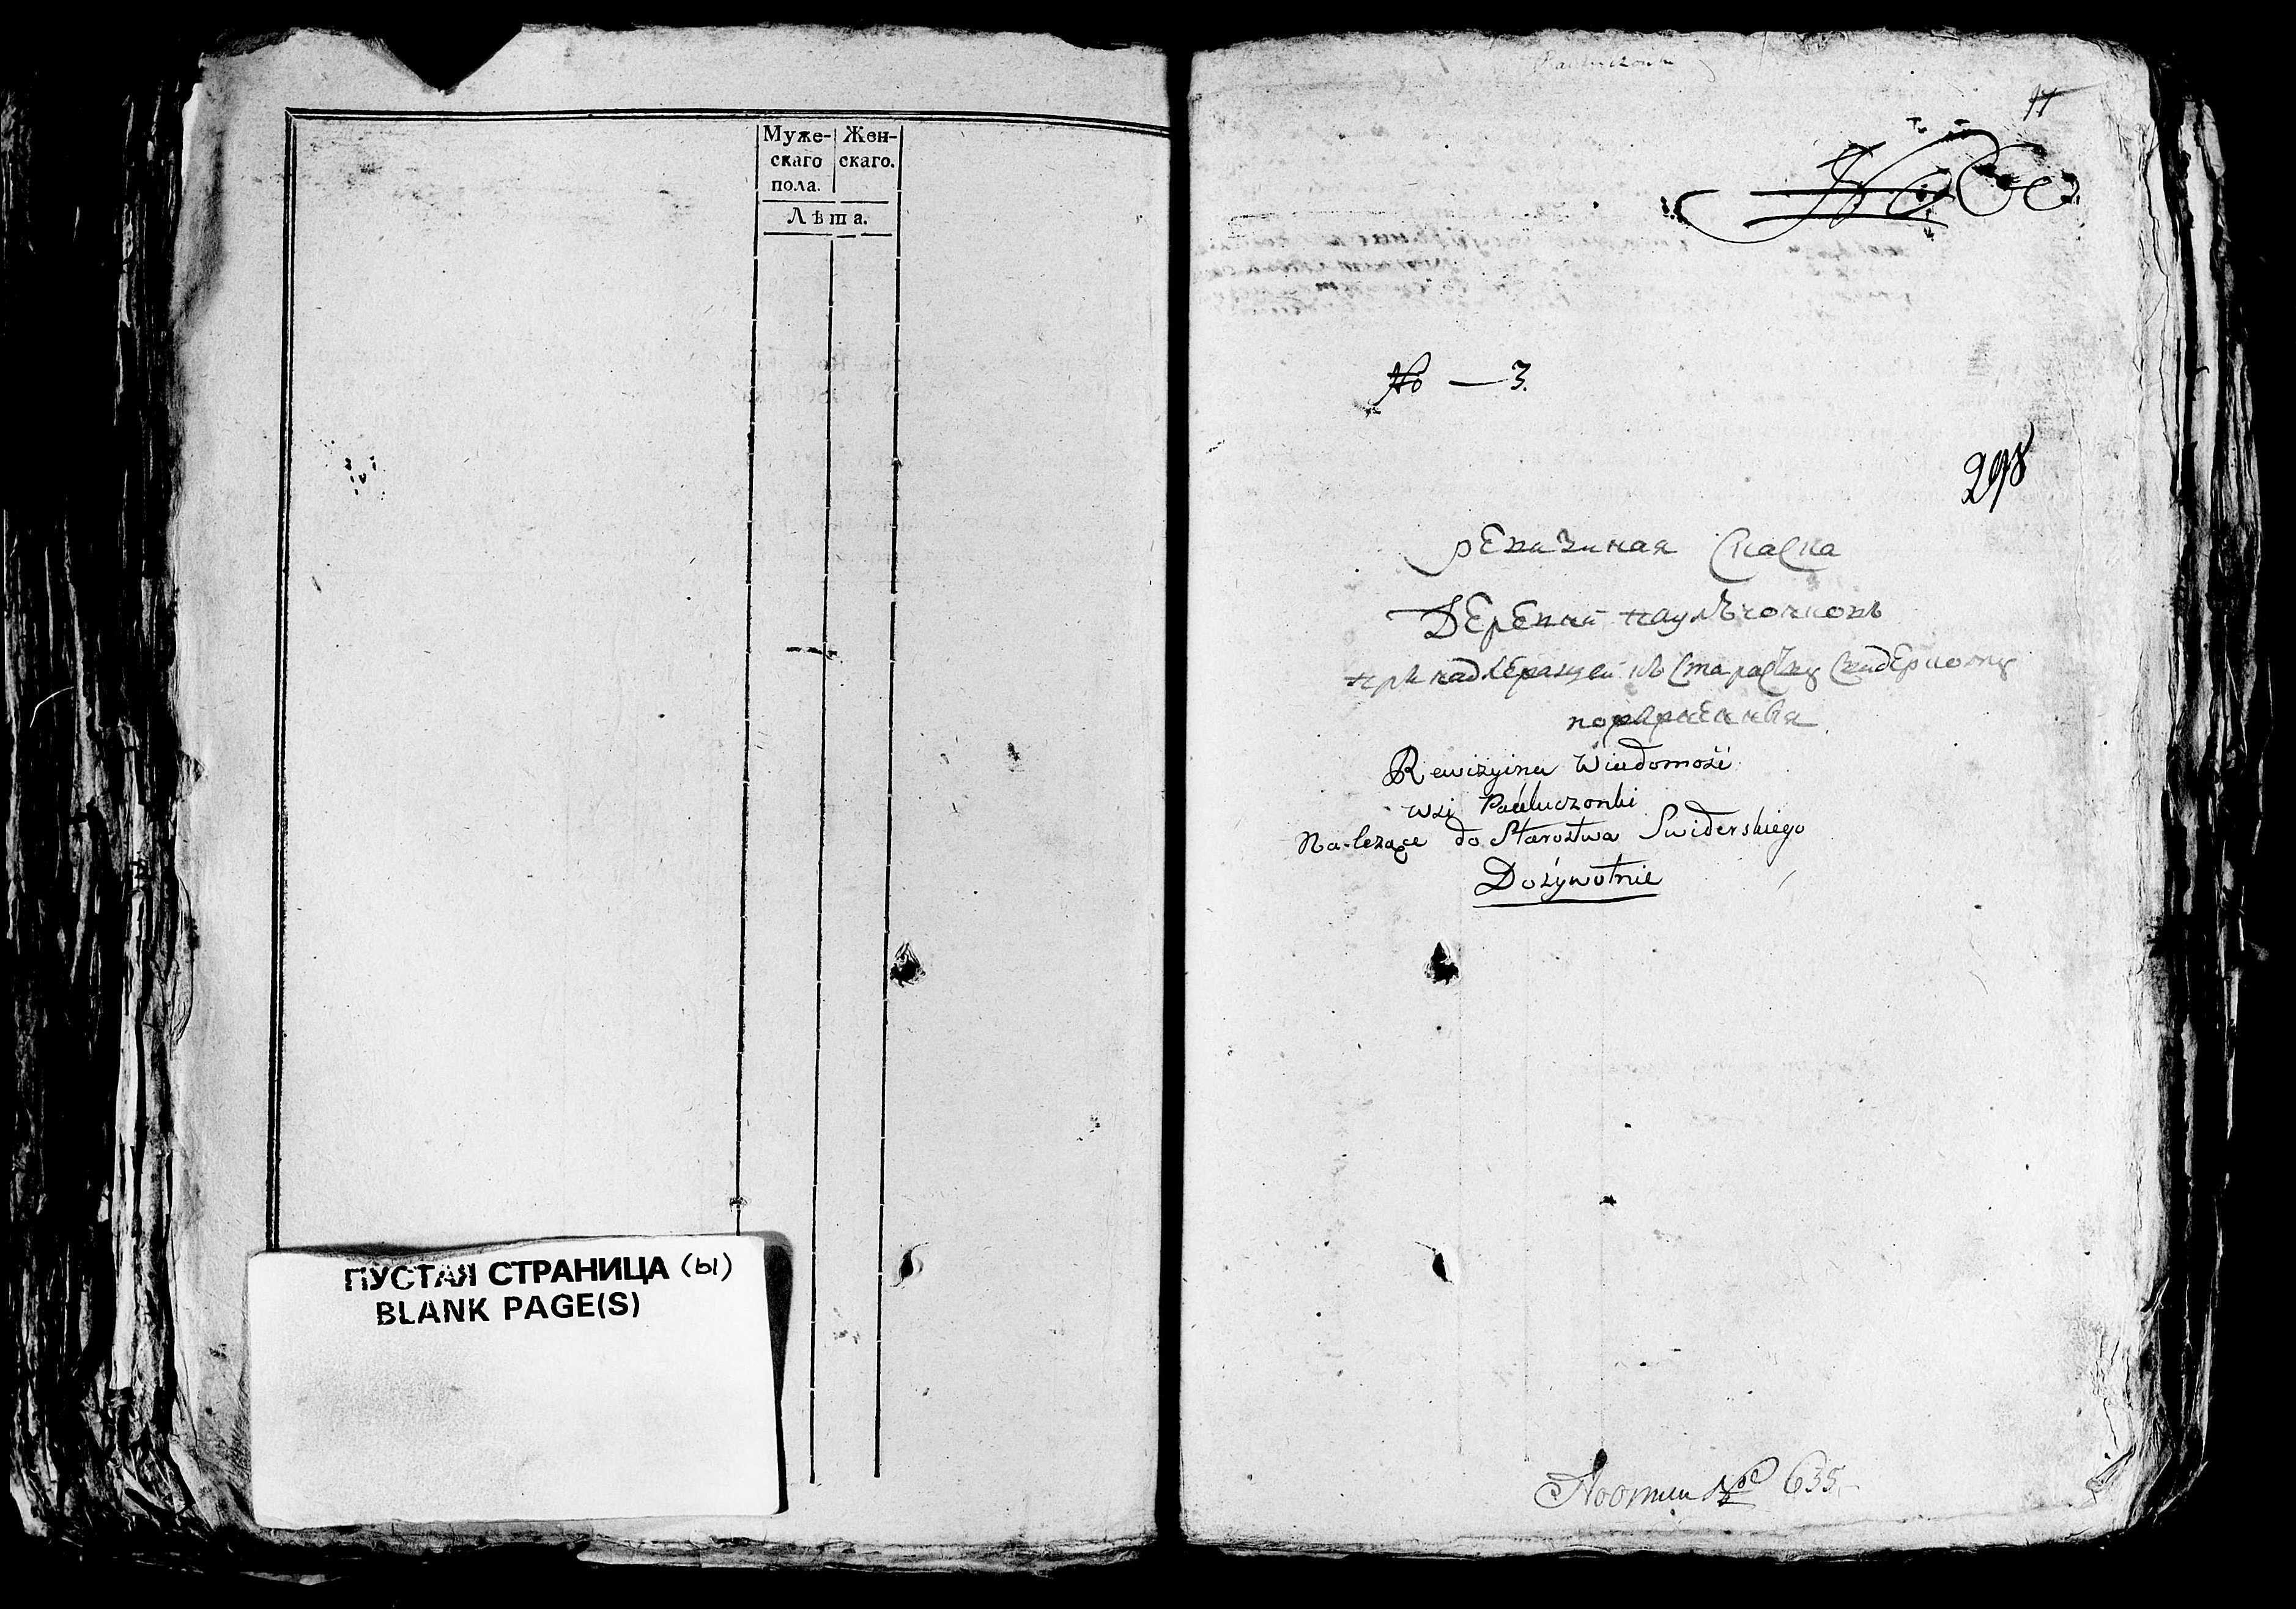 Муже- Жен-
скаго скаго.
пола.
Лѣта.
ПУСТАЯ СТРАНИЦА (ы)
BLANK PAGE(S)
No — 3.
298
ревизиная Сказка
Деревни паулѣчонковъ
принадлежащей къ Старосту Свидерскому
Rewizyina Wiadomość
wsi Pauluczonki
Na-lezące do Starostwa Swiderskiego
Dożywotnie
№ 635